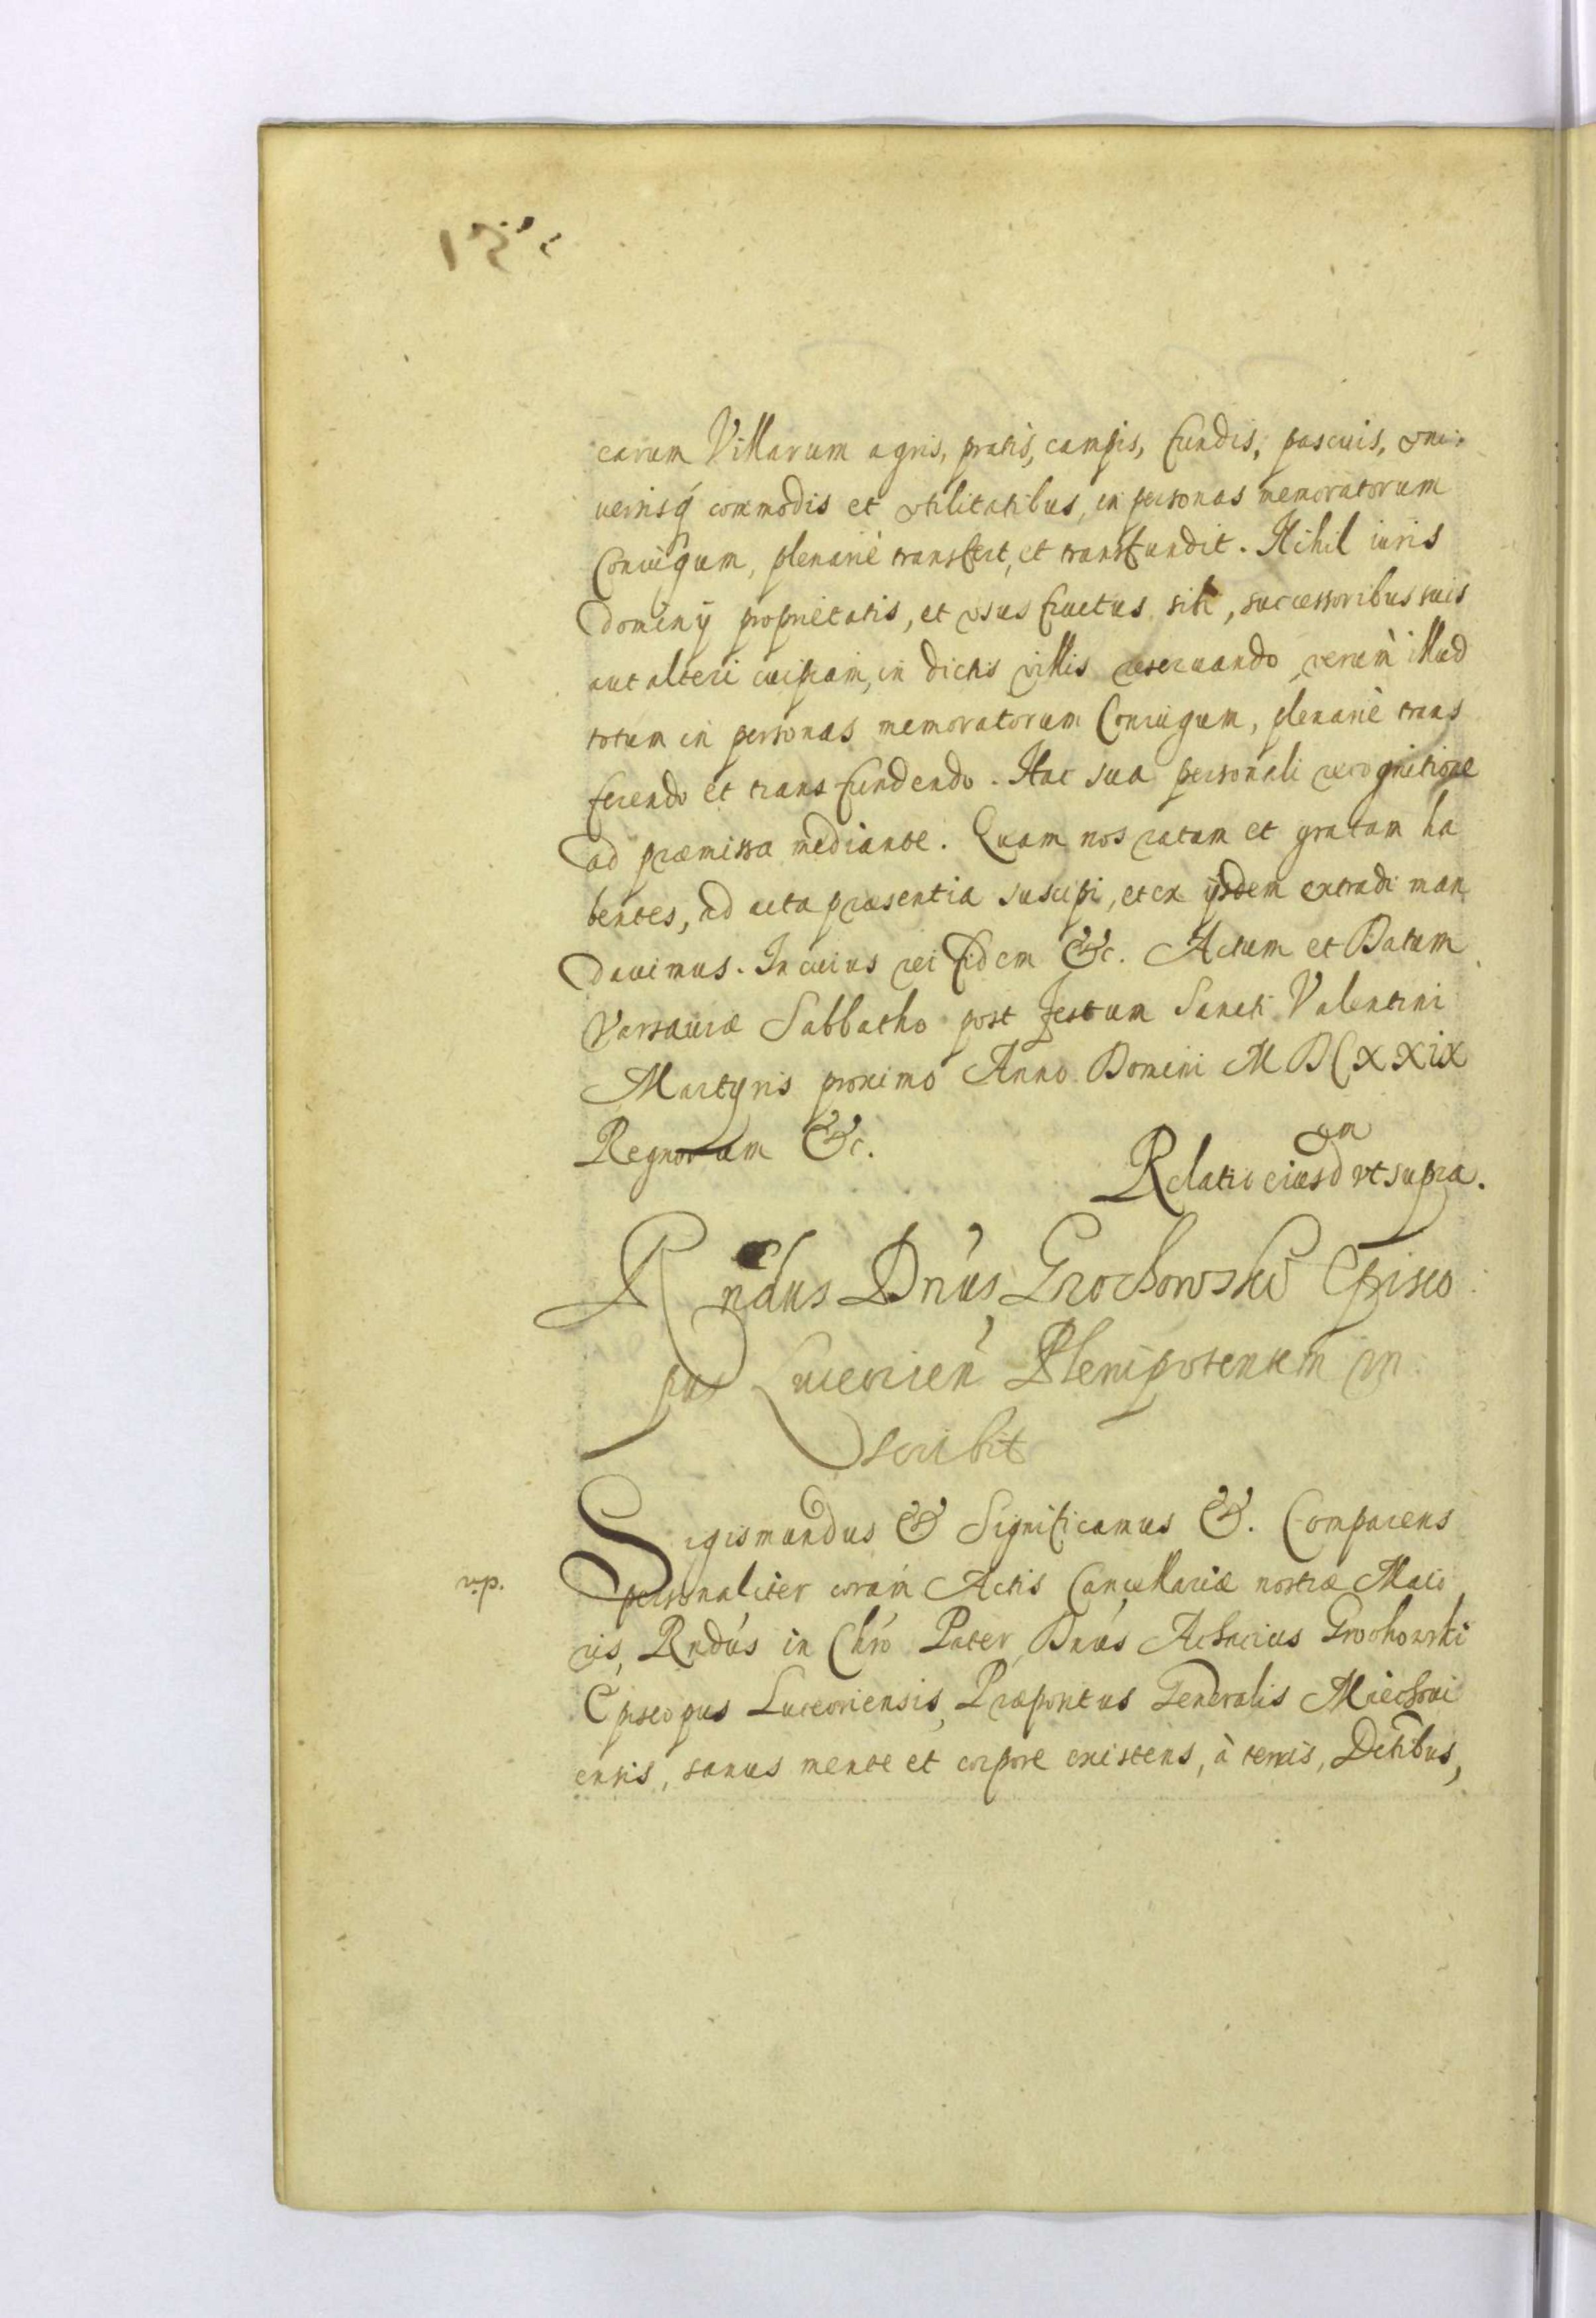 earum Villarum agris, pratis, campis, fundis, pascuis, vni-
uersisq́ commodis et vtilitatibus, in personas memoratorum
Coniugum, plenariè transfert, et transfundit. Nihil iuris
dominÿ proprietatis, et vsus fructus sibi, successoribus suis
aut alteri cuipiam, in dictis villis reseruando, verùm illud
totum in personas memoratorum Coniugum, plenariè trans
ferendo et transfundendo. Hac sua personali recognitione
ad præmissa mediante. Quam nos ratam et gratam ha
bentes, ad acta præsentia suscipi, et ex ÿsdem extradi man
dauimus. In cuius rei fidem &c. Actum et Datum
Varsauiæ Sabbatho post festum Sancti Valentini
Martyris proximo Anno Domini MDCXXIX
Regnorum &c.
Relatio eiusdem vt supra.
Rndus Dnús Grochowski Episco
pus Luceorien̄ Plenipotentem in
scribit
Sigismundus & Significamus &. Comparens
rp.
personaliter coram Actis Cancellariæ nostræ Maio
ris, Rndús in Chro Pater Dnús Achacius Grochowski
Episcopus Luceoriensis, Præpositus Generalis Miechoui
ensis, sanus mente et corpore existens, à terris, Dctibus,